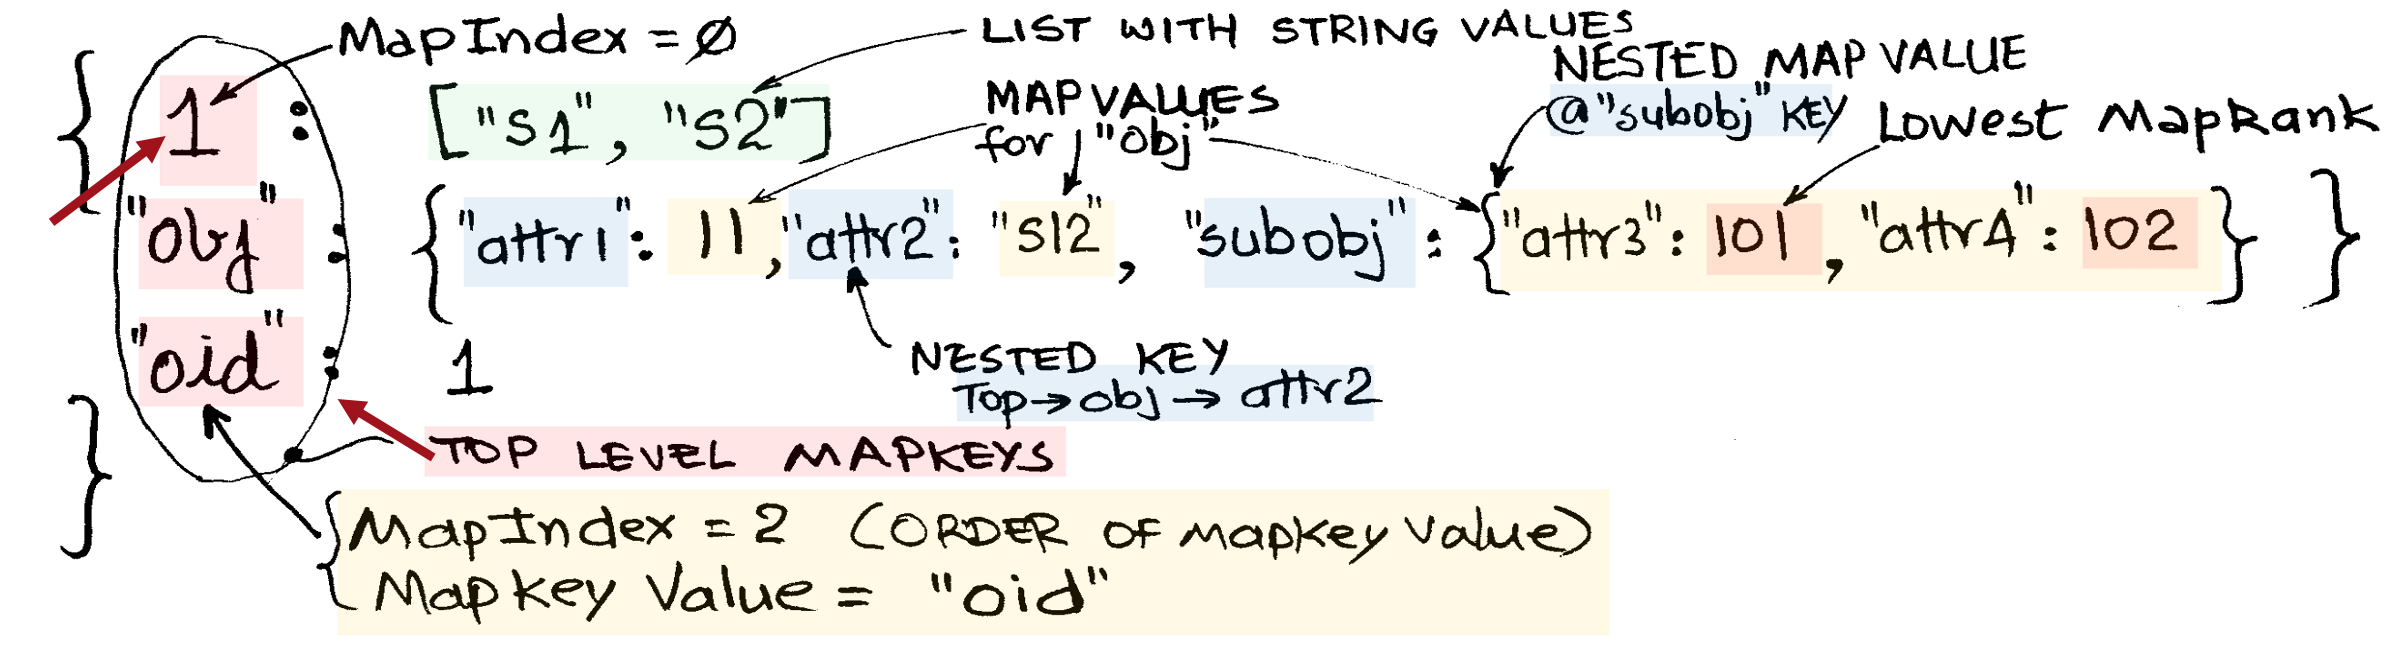 MapIndex = Ø
LIST WITH STRING VALUES
NESTED MAP VALUE
@"subobj" KEY
Lowest MapRank
MAP VALUES
for "obj"
{ 1 : ["S1", "S2"]
"obj" : {"attr1": 11, "attr2": "S12", "subobj": {"attr3": 101, "attr4": 102} }
"oid" : 1
}
NESTED KEY
Top→obj→attr2
TOP LEVEL MAPKEYS
{MapIndex = 2 (ORDER OF mapkey value)
Mapkey Value = "oid"